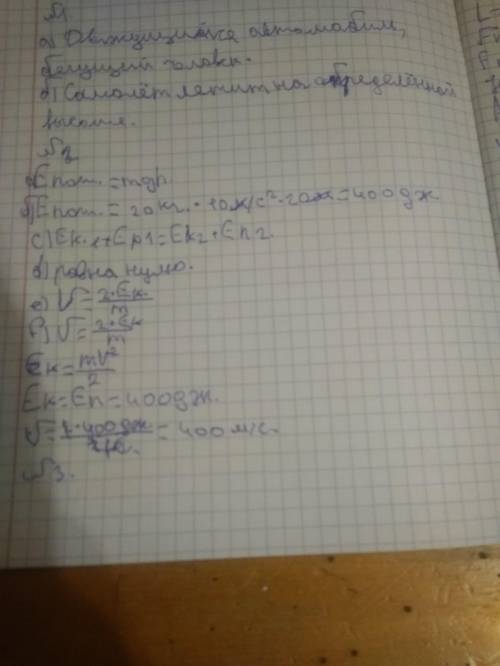 №1
а) Движущийся автомобиль,
бегущий человек.
б) Самолёт летит на определённой
высоте.
№2
a) Eпот. = mgh.
b) Eпот. = 20кг. · 10м/с² · 20м = 400дж
c) Ek1 + Ep1 = Ek2 + Eп2.
d) равна нулю.
e) V = 2·Eк. / m
f) V = 2·Eк / m
Eк = mV² / 2
Eк = Eп = 400дж.
V = 2·400дж. / = 400м/с.
№3.